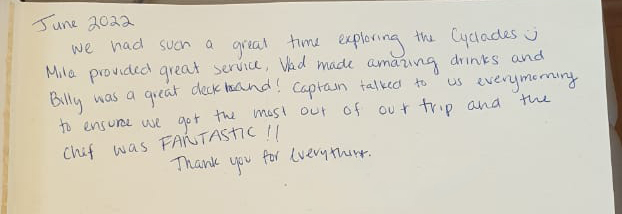 June 2022
We had such a great time exploring the Cyclades
Mila provided great service, Vlad made amazing drinks and
Billy was a great deckhand! Captain talked to us everymorning
to ensure we got the most out of out trip and the
chef was FANTASTIC !!
Thank you for everything.